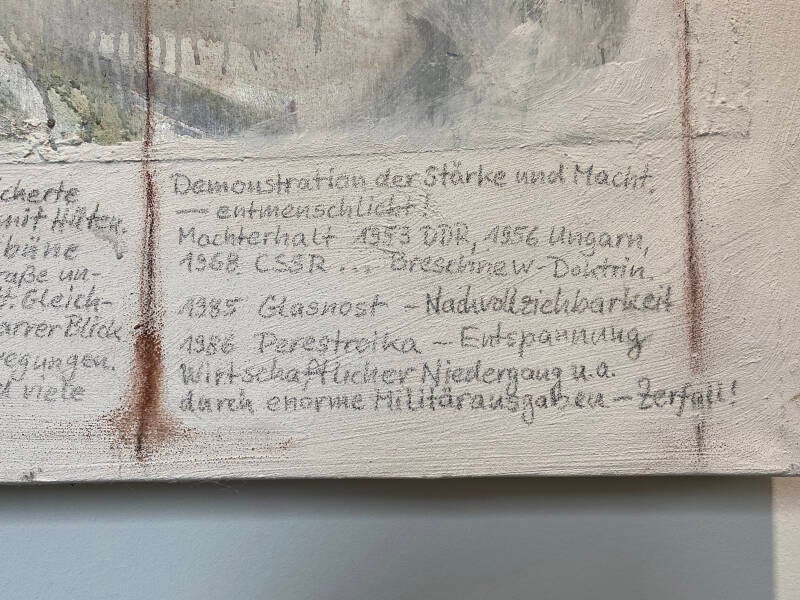 cherte
mit Hüten.
büne
raße un-
t. Gleich-
arrer Blick
egungen.
d viele
Demonstration der Stärke und Macht.
— entmenschlicht!
Machterhalt 1953 DDR, 1956 Ungarn,
1968 CSSR ... Breschnew-Doktrin.
1985 Glasnost – Nachvollziehbarkeit
1986 Perestroika – Entspannung
Wirtschaftlicher Niedergang u.a.
durch enorme Militärausgaben – Zerfall!